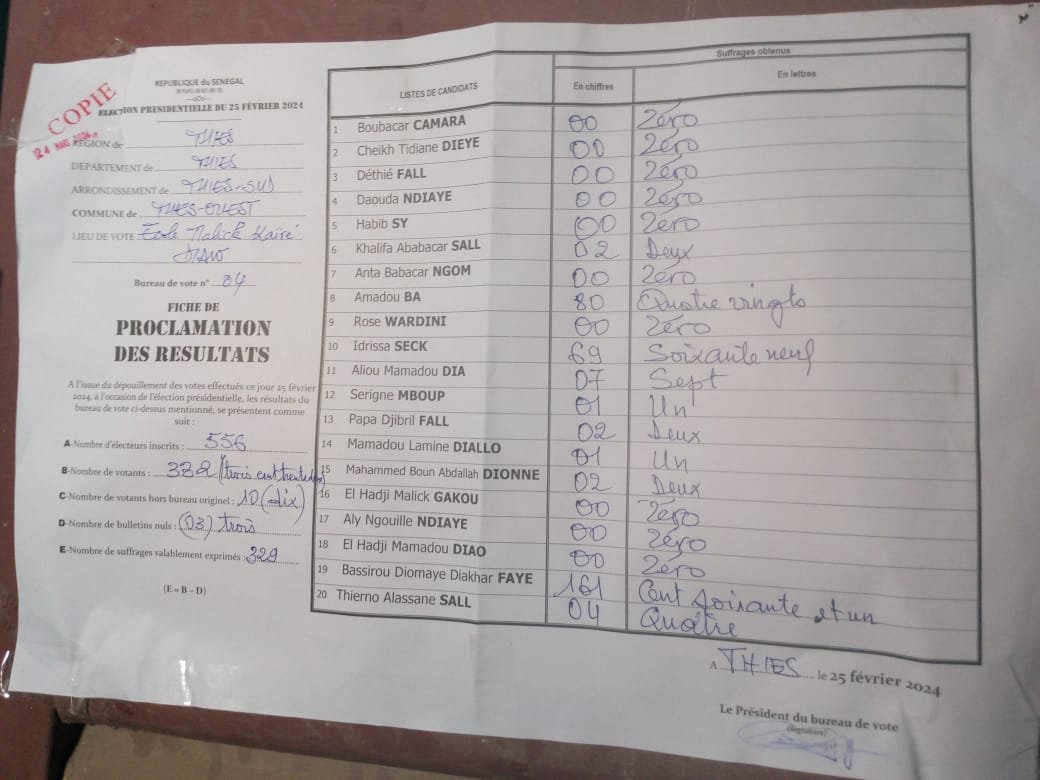 COPIE
24 MARS 2024
REPUBLIQUE du SENEGAL
ELECTION PRESIDENTIELLE DU 25 FÉVRIER 2024
REGION de THIES
DEPARTEMENT de THIES
ARRONDISSEMENT de THIES-SUD
COMMUNE de THIES-OUEST
LIEU DE VOTE Ecole Malick Kaïré
DIAW
Bureau de vote n° 04
FICHE DE
PROCLAMATION
DES RESULTATS
A l'issue du dépouillement des votes effectués ce jour 25 février
2024, à l'occasion de l'élection présidentielle, les résultats du
bureau de vote ci-dessus mentionné, se présentent comme
suit :
A-Nombre d'électeurs inscrits : 556
B-Nombre de votants : 332 (trois cent trente deux)
C-Nombre de votants hors bureau originel : 10 (dix)
D-Nombre de bulletins nuls : (03) trois
E-Nombre de suffrages valablement exprimés : 329
(E = B - D)
Suffrages obtenus
LISTES DE CANDIDATS En chiffres En lettres
1 Boubacar CAMARA 00 Zéro
2 Cheikh Tidiane DIEYE 00 Zéro
3 Déthié FALL 00 Zéro
4 Daouda NDIAYE 00 Zéro
5 Habib SY 00 Zéro
6 Khalifa Ababacar SALL 02 Deux
7 Anta Babacar NGOM 00 Zéro
8 Amadou BA 80 Quatre vingts
9 Rose WARDINI 00 Zéro
10 Idrissa SECK 69 Soixante neuf
11 Aliou Mamadou DIA 07 Sept
12 Serigne MBOUP 01 Un
13 Papa Djibril FALL 02 Deux
14 Mamadou Lamine DIALLO 01 Un
15 Mahammed Boun Abdallah DIONNE 02 Deux
16 El Hadji Malick GAKOU 00 Zéro
17 Aly Ngouille NDIAYE 00 Zéro
18 El Hadji Mamadou DIAO 00 Zéro
19 Bassirou Diomaye Diakhar FAYE 161 Cent soixante et un
20 Thierno Alassane SALL 04 Quatre
A THIES le 25 février 2024
Le Président du bureau de vote
(signature)